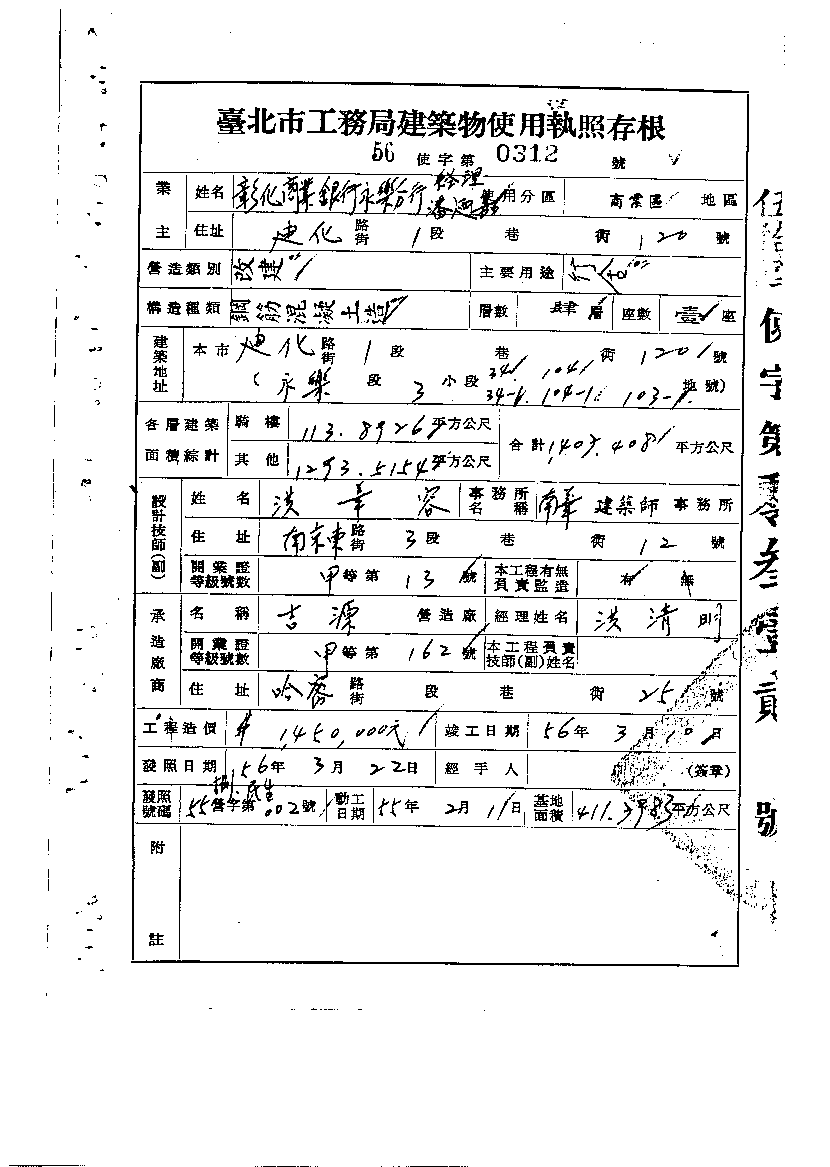 臺北市工務局建築物使用執照存根
56 使字第 0312 號
業主 姓名 彰化商業銀行永樂分行 經理 使用分區 商業區 地區
住址 迪化 路街 1 段 巷 衖 120 號
營造類別 改建 主要用途 行舍
構造種類 鋼筋混凝土造 層數 肆層 座數 壹座
建築地址 本市 迪化 路街 1 段 巷 衖 120 號
(永樂 段 3 小段 34, 104, 34-1, 104-1, 103-1 地號)
各層建築面積綜計 騎樓 113.8926 平方公尺 合計 1,407.408 平方公尺
其他 1293.5154 平方公尺
設計技師(副) 姓名 洪華容 事務所名稱 南華 建築師 事務所
住址 南京東 路街 3 段 巷 衖 12 號
開業證等級號數 甲等第 13 號 本工程有無負責監造 有 無
承造廠商 名稱 吉源 營造廠 經理姓名 洪清明
開業證等級號數 甲等第 162 號 本工程負責技師(副)姓名
住址 哈密 路街 段 巷 衖 25 號
工程造價 $1,450,000元 竣工日期 56年 3月 10日
發照日期 56年 3月 22日 經手人 (簽章)
發照號碼 55 營字第 002 號 動工日期 55年 2月 11日 基地面積 411.3983 平方公尺
附註
使字第零叁壹貳號